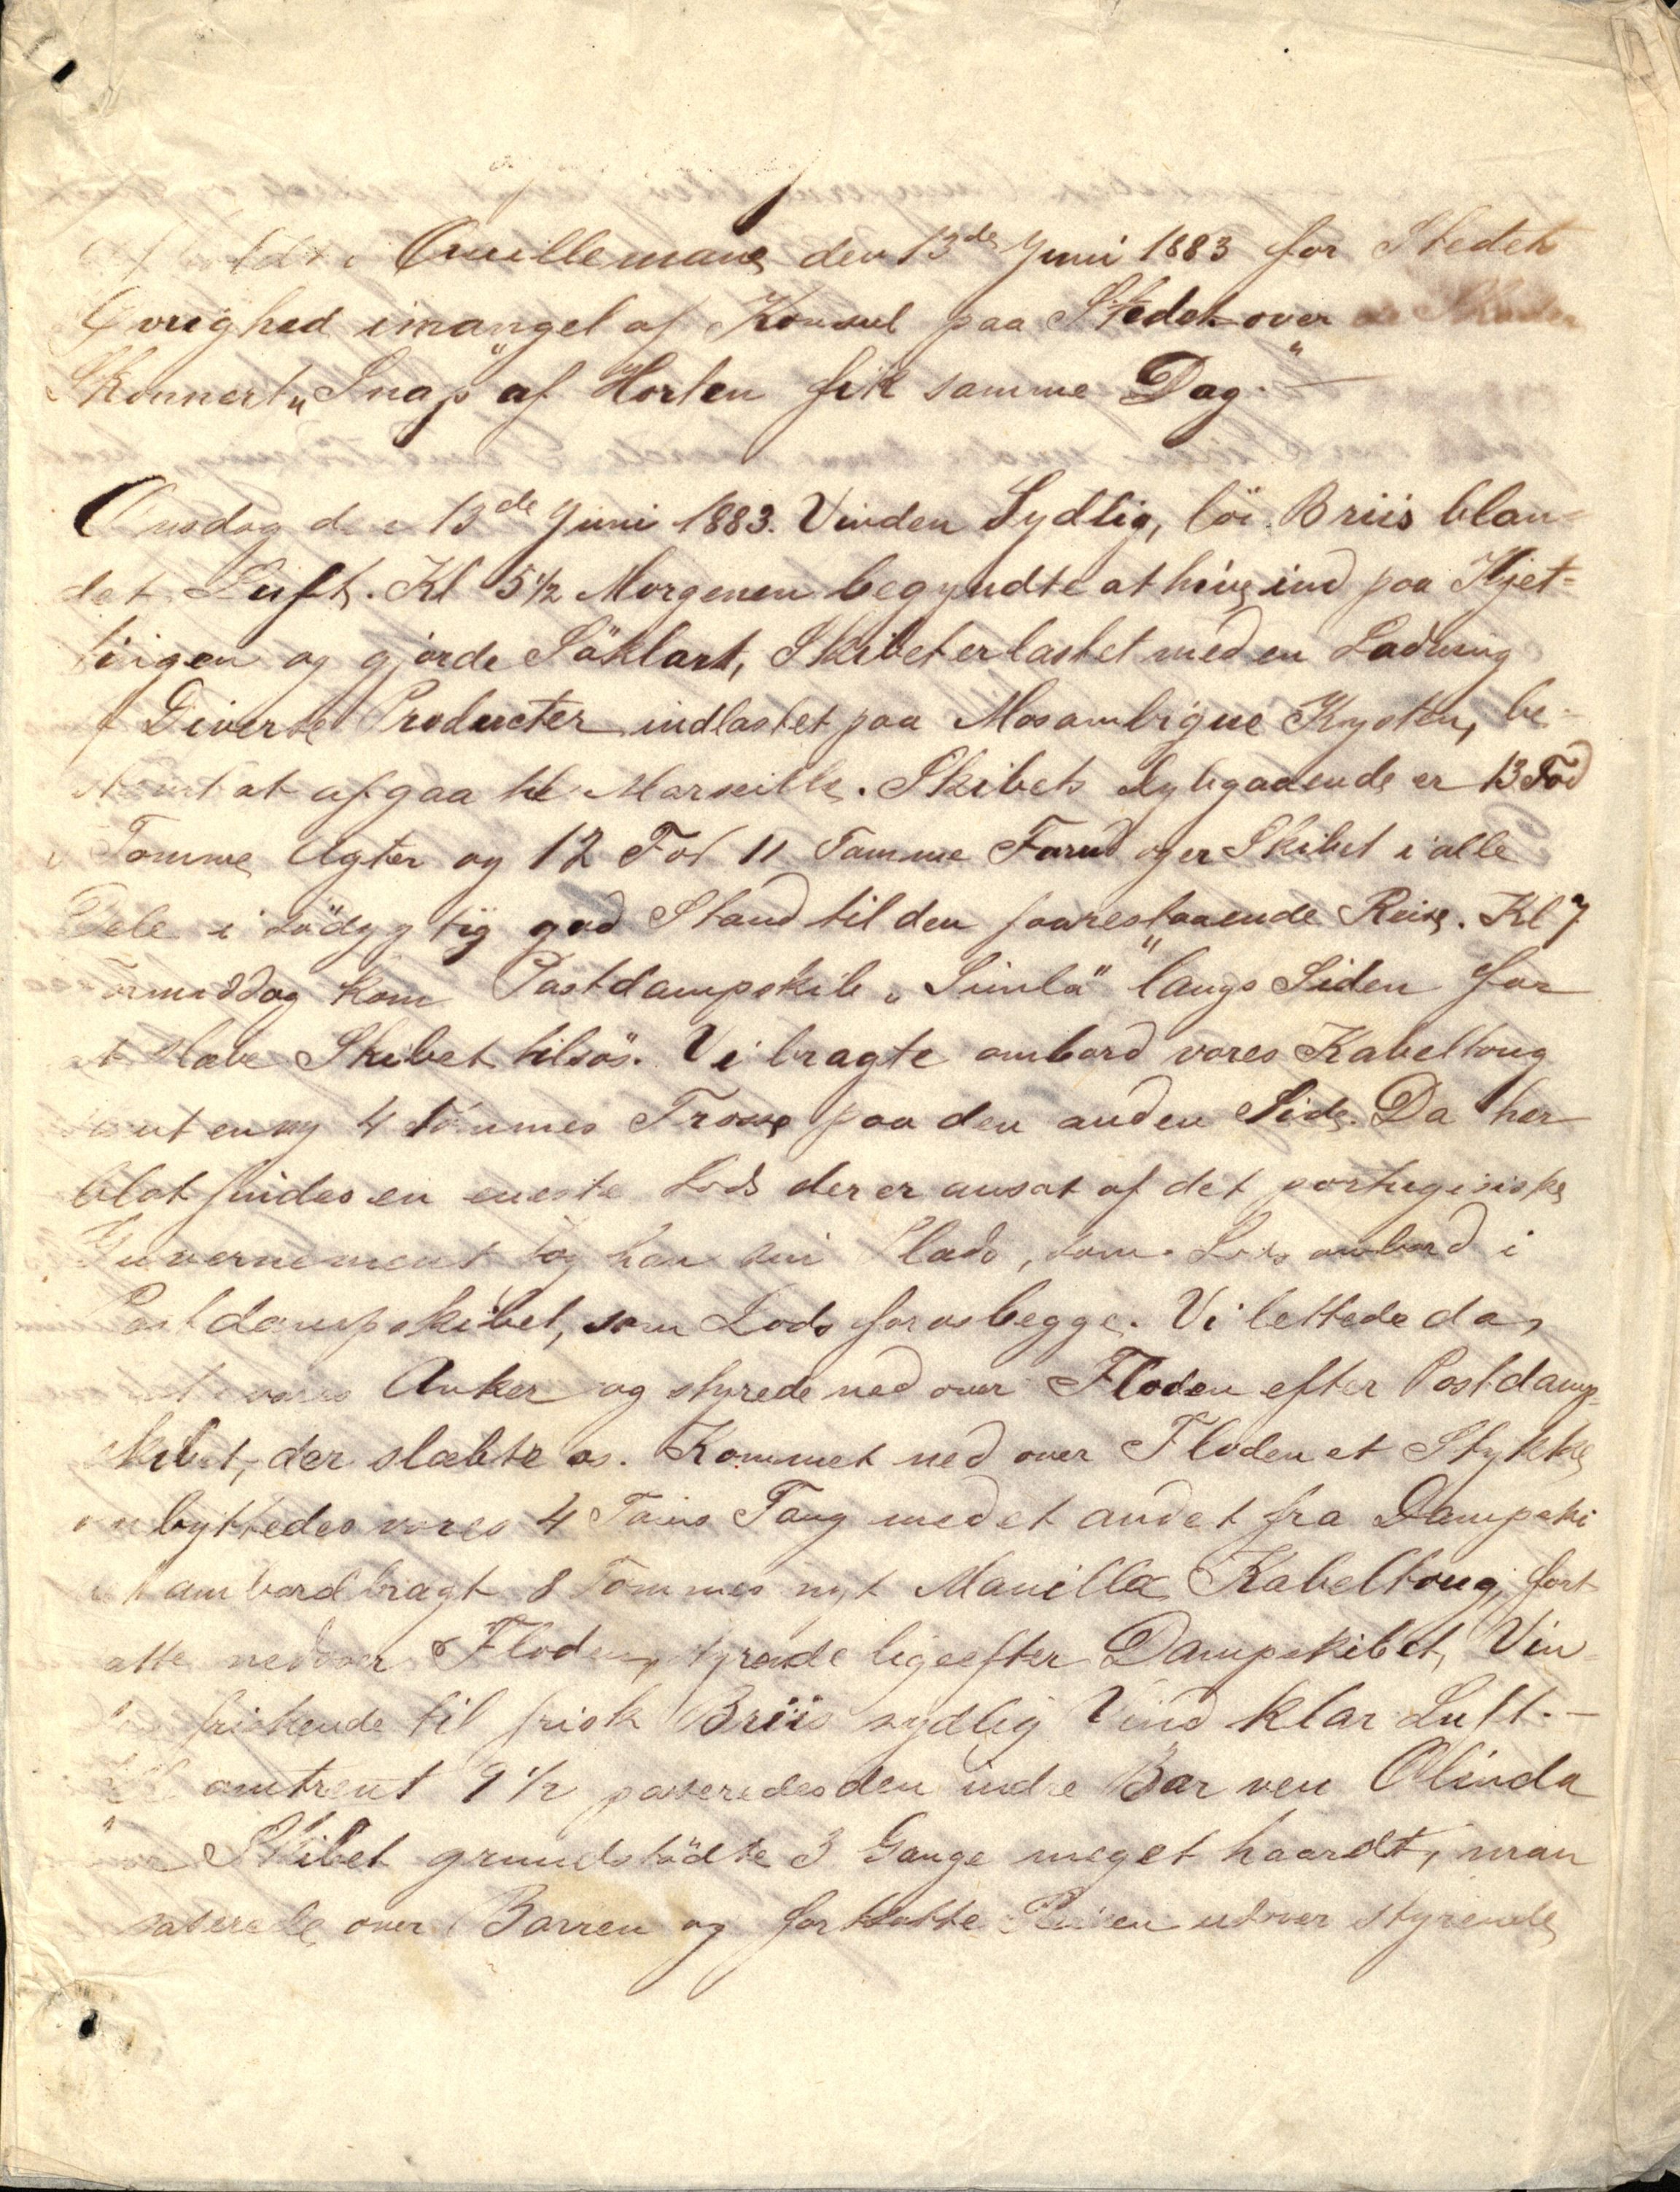 Quillemane den 13de Juni 1883 for Stedets
Øvrighed imangel af Konsul paa Stedet over
Skonnert „Snap" af Horten fik samme Dag. —
Onsdag den 13de Juni 1883. Vinden Sydlig, löi Briis blan-
det Luft. Kl 5½ Morgenen begyndte at hive ind paa Kjet-
tingen og gjorde Söklart, Skibet er lastet med en Ladning
Diverse Producter indlastet paa Mosambique Kysten, be-
stemt at afgaa til Marseille. Skibets dybgaaende er 13 Fod
Tomme Agter og 12 Fod 11 Tomme Forud og er Skibet i alle
Dele i södygtig god Stand til den forestaaende Reise. Kl 7
Formiddag kom Postdampskib „Simla" langs Siden for
at slæbe Skibet tilsös. Vi bragte ombord vores Kabeltoug
samt en ny 4 tommes Trosse paa den anden Side. Da her
blot findes en eneste Lods der er ansat af det portugisiske
Guvernement tog han sin Plads, som Lods ombord i
Postdampskibet, som Lods for os begge. Vi lettede da,
vores Anker og styrede ned over Floden efter Postdamp-
skibet, der slæbte os. Kommet ned over Floden et Stykke
ombyttedes vores 4 Toms Toug med et andet fra Dampski
et ombordbragt 8 Tommes nyt Manilla Kabeltoug, fort
satte nedover Floden, styrede lige efter Dampskibet, Vin-
den friskende til frisk Briis sydlig Vind klar Luft. —
Kl omtrent 9½ passeredes den indre Bar ven Olinda
Skibet grundstödte 3 Gange meget haardt, man
passerede over Barren og fortsatte Reisen udover styrende